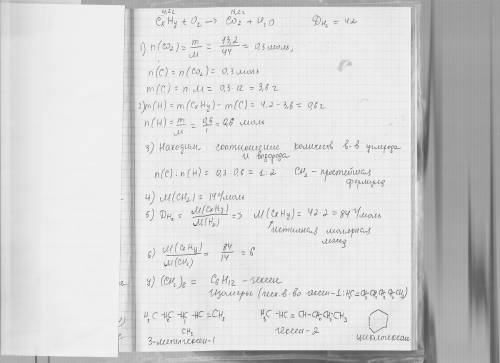 4,2г 13,2г
CxHy + O₂ → CO₂ + H₂O DH₂ = 42
1) n(CO₂) = m/M = 13,2/44 = 0,3 моль,
n(C) = n(CO₂) = 0,3 моль
m(C) = n·M = 0,3·12 = 3,6 г
2) m(H) = m(CxHy) - m(C) = 4,2 - 3,6 = 0,6 г
n(H) = m/M = 0,6/1 = 0,6 моль
3) Находим соотношение количеств в-в углерода
и водорода
n(C) : n(H) = 0,3 : 0,6 = 1:2 CH₂ - простейшая
формула
4) M(CH₂) = 14 г/моль
5) DH₂ = M(CxHy)/M(H₂) => M(CxHy) = 42·2 = 84 г/моль
истинная молярная
масса
6) M(CxHy)/M(CH₂) = 84/14 = 6
7) (CH₂)₆ = C₆H₁₂ - гексен
Изомеры
H₃C-HC=CH-CH₂-CH₂-CH₃
CH₃
3-метилгексен-1 гексен-2 циклогексан